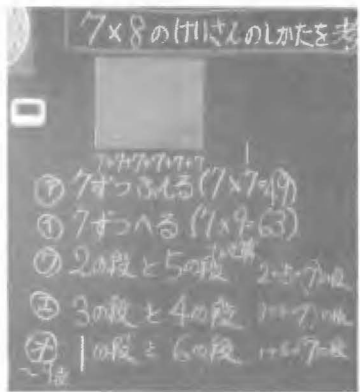 7×8の(けいさんのしかたを考
7+7+7+7+7+7
㋐ 7ずつふえる(7×7=49)
㋑ 7ずつへる(7×9=63)
㋒ 2の段と5の段 2+5=7の段
㋓ 3の段と4の段 3+4=7の段
㋔ 1の段と6の段 1+6=7の段